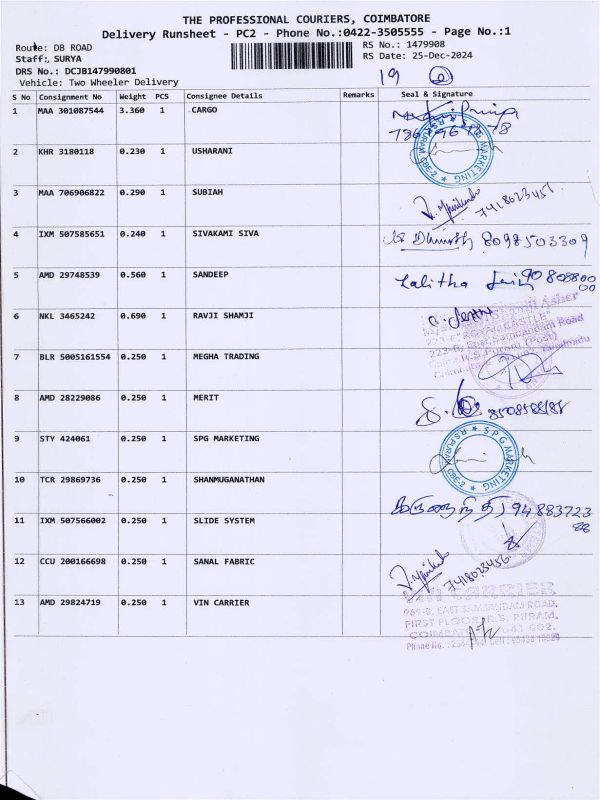 THE PROFESSIONAL COURIERS, COIMBATORE
Delivery Runsheet - PC2 - Phone No.:0422-3505555 - Page No.:1
Route: DB ROAD RS No.: 1479908
Staff: SURYA RS Date: 25-Dec-2024
DRS No.: DCJB147990801
Vehicle: Two Wheeler Delivery 19
S No Consignment No Weight PCS Consignee Details Remarks Seal & Signature
1 MAA 301087544 3.360 1 CARGO
SPG MARKETING
2 KHR 3180118 0.230 1 USHARANI
3 MAA 706906822 0.290 1 SUBIAH 7418023456
4 IXM 507585651 0.240 1 SIVAKAMI SIVA 8098503309
5 AMD 29748539 0.560 1 SANDEEP Lalitha Jain 90808800
00
6 NKL 3465242 0.690 1 RAVJI SHAMJI
7 BLR 5005161554 0.250 1 MEGHA TRADING
8 AMD 28229086 0.250 1 MERIT
9 STY 424061 0.250 1 SPG MARKETING SPG MARKETING
10 TCR 29869736 0.250 1 SHANMUGANATHAN
94883723
11 IXM 507566002 0.250 1 SLIDE SYSTEM
12 CCU 200166698 0.250 1 SANAL FABRIC 7418023456
13 AMD 29824719 0.250 1 VIN CARRIER
969-B, EAST SAMBANDAM ROAD,
FIRST FLOOR, R.S. PURAM,